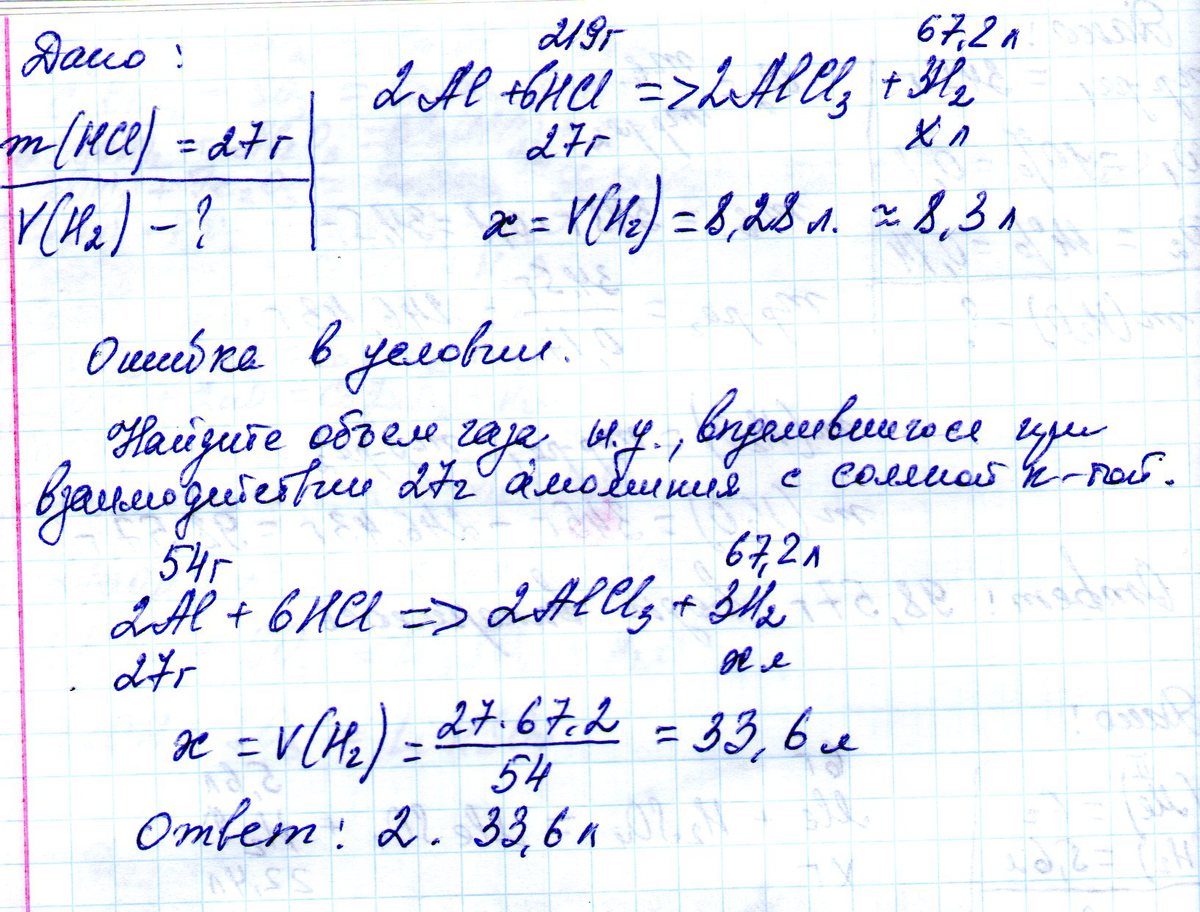 Дано:
219г 67,2 л
2Al + 6HCl => 2AlCl₃ + 3H₂
m(HCl) = 27г
27г x л
V(H₂) – ?
x = V(H₂) = 8,28 л. ≈ 8,3 л
Ошибка в условии.
Найдите объем газа н.у., выделившегося при
взаимодействии 27г алюминия с соляной к-той.
54г 67,2л
2Al + 6HCl => 2AlCl₃ + 3H₂
27г x л
x = V(H₂) = 27·67,2 / 54 = 33,6 л
Ответ: 2. 33,6 л